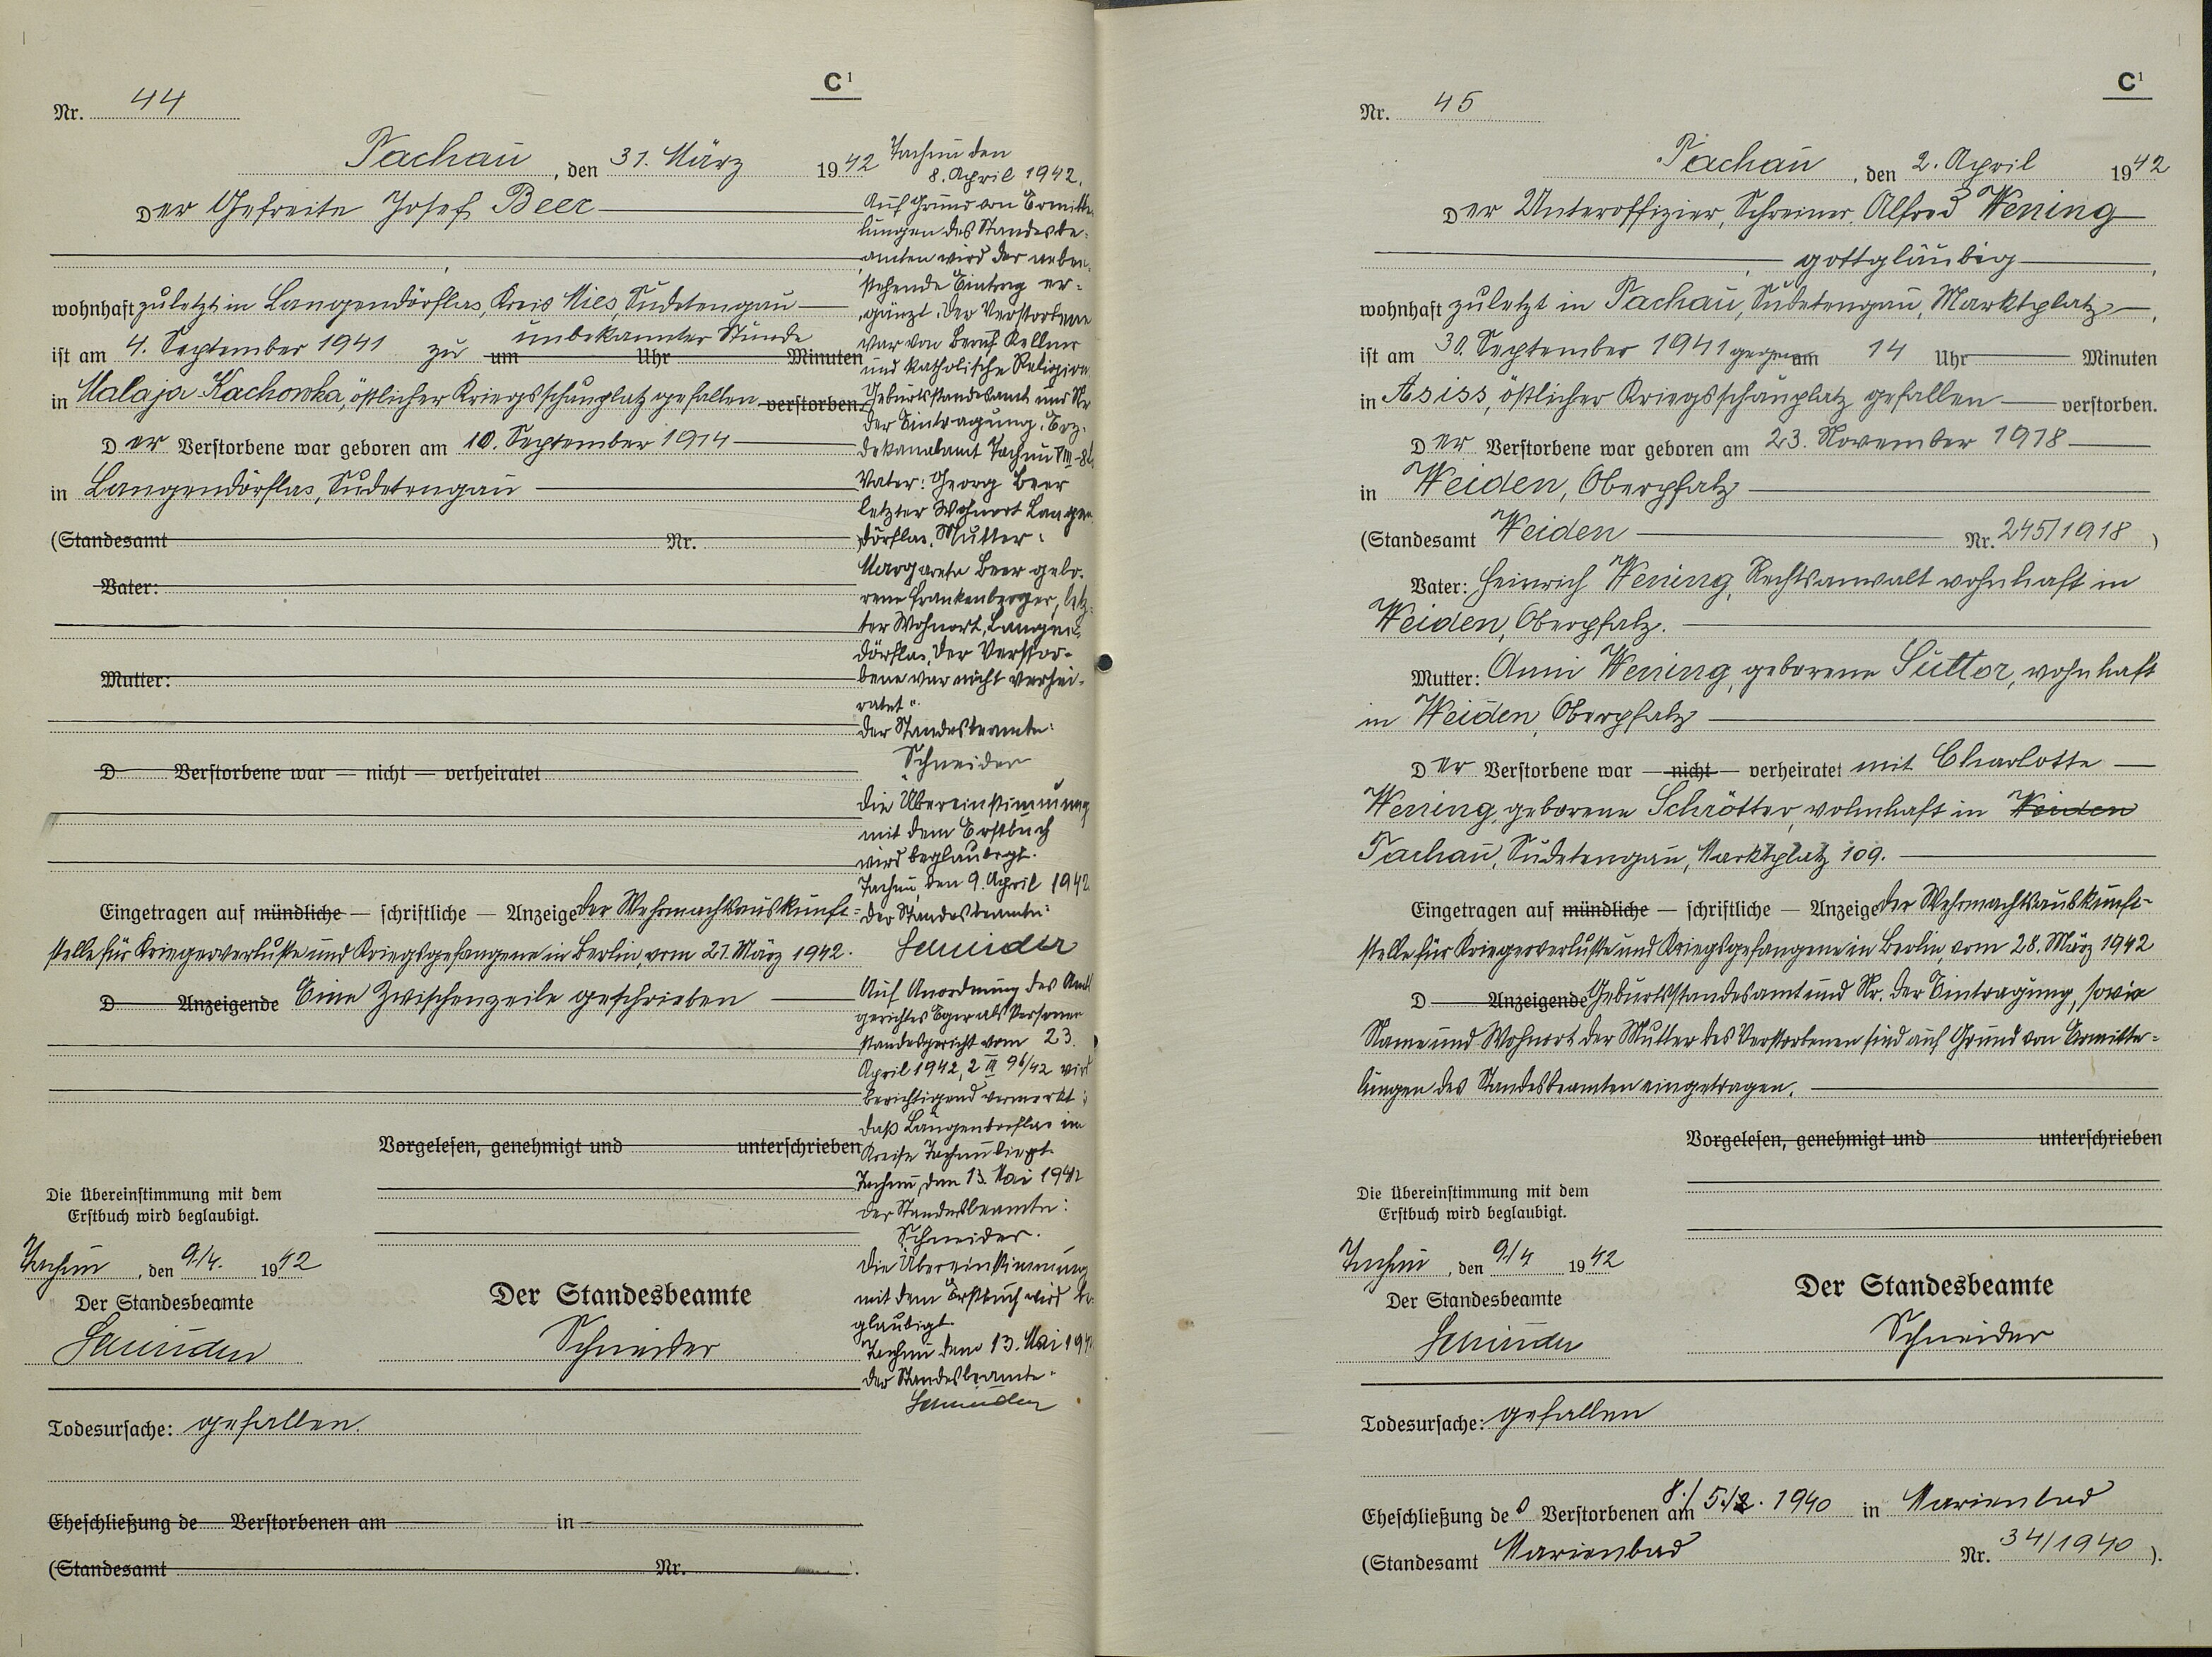 C¹
Nr. 44
Tachau, den 31. März 1942
Der Gefreite Josef Beer
wohnhaft zuletzt in Langendörflas, Kreis Mies, Sudetengau
unbekannter Stunde
ist am 4. September 1941 zu um Uhr Minuten
in Malaja Kachowka, östlicher Kriegsschauplatz gefallen verstorben.
Der Verstorbene war geboren am 10. September 1914
in Langendörflas, Sudetengau
(Standesamt Nr.
Vater:
Mutter:
D Verstorbene war — nicht — verheiratet
Eingetragen auf mündliche — schriftliche — Anzeige der Wehrmachtsauskunft-
stelle für Kriegerverluste und Kriegsgefangene in Berlin, vom 27. März 1942.
D Anzeigende Eine Zwischenzeile geschrieben
Vorgelesen, genehmigt und unterschrieben
Die Übereinstimmung mit dem
Erstbuch wird beglaubigt.
Tachau, den 9./4. 1942
Der Standesbeamte
Schneider
Der Standesbeamte
Schneider
Todesursache: gefallen.
Eheschließung de Verstorbenen am in
(Standesamt Nr. .
Tachau den
8. April 1942.
Auf Grund von Ermitte-
lungen des Standesbe-
amten wird der neben-
stehende Eintrag er-
gänzt. „Der Verstorbene
war von Beruf Kellner
und katholische Religion
Geburtsstandesamt und Nr
der Eintragung: Erz-
dekanalamt Tachau VIII
Vater: Georg Beer
letzter Wohnort Langen-
dörflas. Mutter:
Margareta Beer gebo-
rene Frankenberger, letz-
ter Wohnort, Langen-
dörflas. Der Verstor-
bene war nicht verhei-
ratet".
Der Standesbeamte:
Schneider
Die Übereinstimmung
mit dem Erstbuch
wird beglaubigt.
Tachau, den 9. April 1942
Der Standesbeamte:
Schneider
Auf Anordnung des Amts
gerichtes Eger als Personen
standsgericht vom 23.
April 1942, 2 III 96/42 wird
berichtigend vermerkt:
daß Langendörflas im
Kreise Tachau liegt.
Tachau, den 13. Mai 1942
Der Standesbeamte:
Schneider.
Die Übereinstimmung
mit dem Erstbuch wird be-
glaubigt
Tachau dem 13. Mai 194
Der Standesbeamte.
Schneider
C¹
Nr. 45
Tachau, den 2. April 1942
Der Unteroffizier, Schreiner Alfred Wening
, gottgläubig,
wohnhaft zuletzt in Tachau, Sudetengau, Marktplatz,
ist am 30. September 1941 gegen um 14 Uhr Minuten
in Asiss, östlicher Kriegsschauplatz gefallen verstorben.
Der Verstorbene war geboren am 23. November 1918
in Weiden, Oberpfalz
(Standesamt Weiden Nr. 245/1918)
Vater: Heinrich Wening, Rechtsanwalt wohnhaft in
Weiden, Oberpfalz.
Mutter: Anni Wening, geborene Suttor, wohnhaft
in Weiden, Oberpfalz
Der Verstorbene war — nicht — verheiratet mit Charlotte
Wening, geborene Schrötter, wohnhaft in Weiden
Tachau, Sudetengau, Marktplatz 109.
Eingetragen auf mündliche — schriftliche — Anzeige der Wehrmachtsauskunft-
stelle für Kriegerverluste und Kriegsgefangene in Berlin, vom 28. März 1942
D Anzeigende Geburtsstandesamt und Nr. der Eintragung, sowie
Name und Wohnort der Mutter des Verstorbenen sind auf Grund von Ermitte-
lungen des Standesbeamten eingetragen.
Vorgelesen, genehmigt und unterschrieben
Die Übereinstimmung mit dem
Erstbuch wird beglaubigt.
Tachau, den 9./4 1942
Der Standesbeamte
Schneider
Der Standesbeamte
Schneider
Todesursache: gefallen
Eheschließung des Verstorbenen am 8./5./2. 1940 in Marienbad
(Standesamt Marienbad Nr. 34/1940).